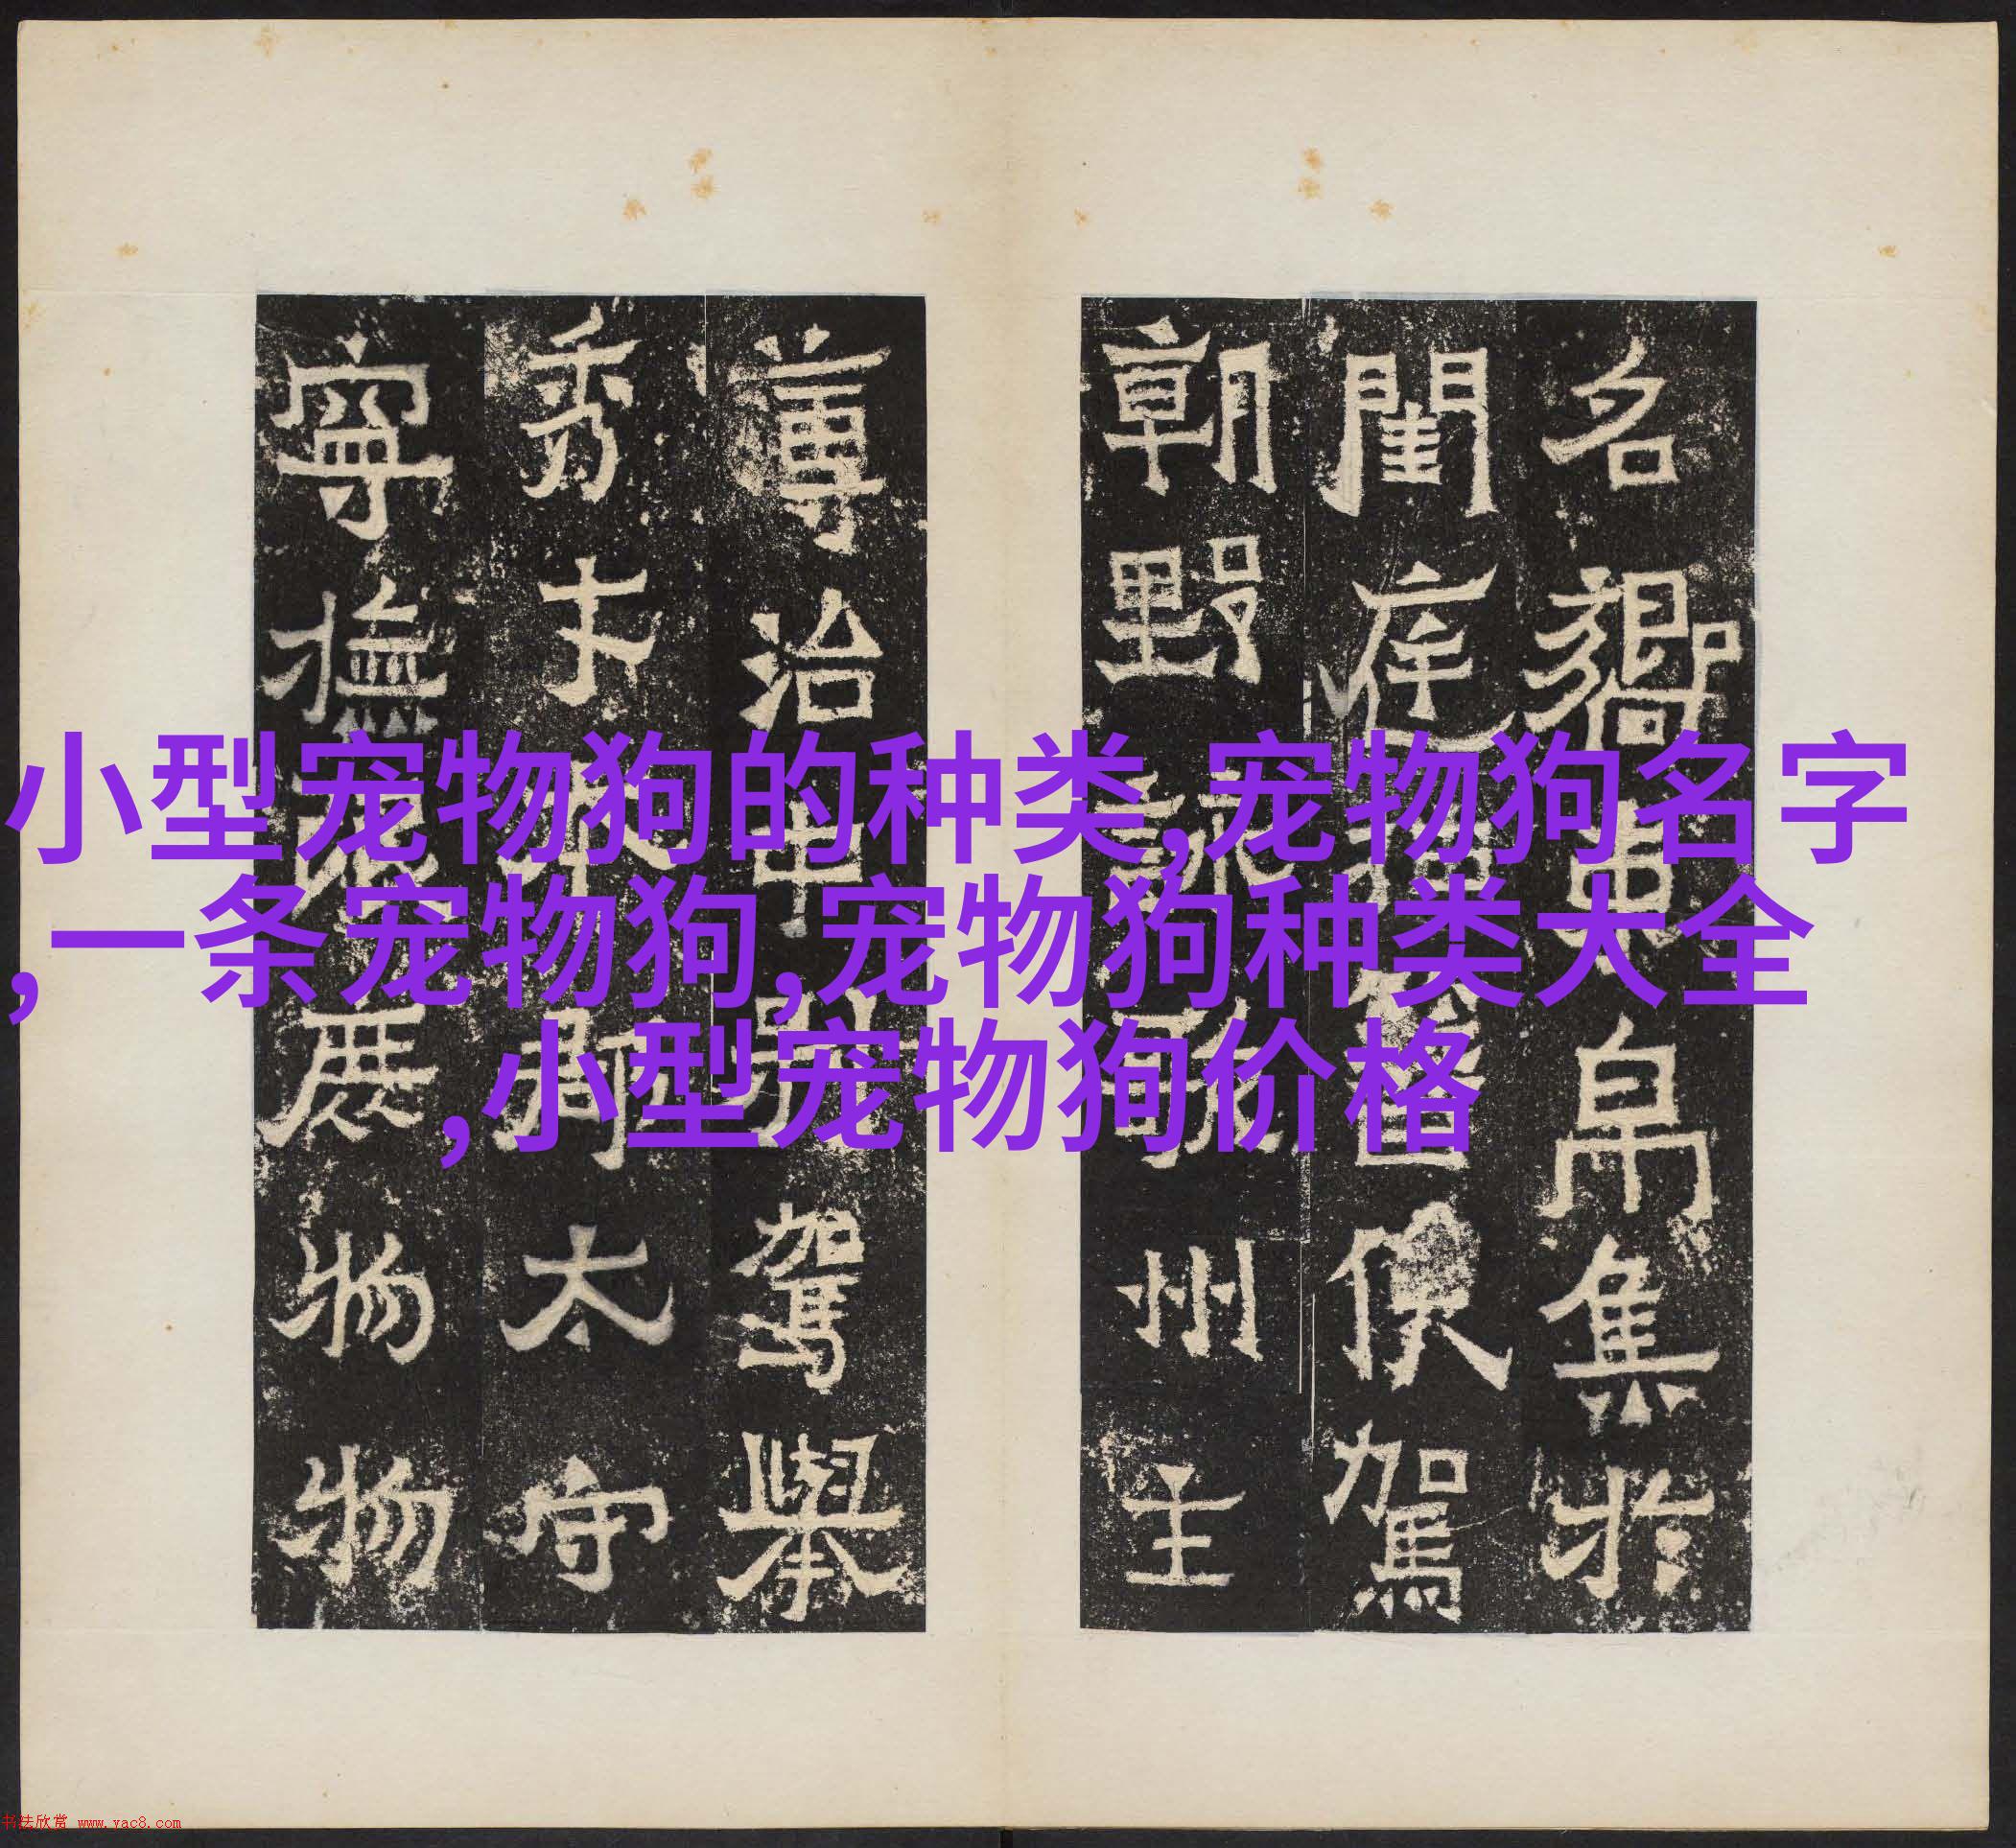 小型宠物狗的种类,宠物狗名字
,一条宠物狗,宠物狗种类大全
,小型宠物狗价格
名鄉帛集於
閨庭俟駕
朝野詠歌州主
治中別駕舉
秀才郡太守
寧撫物物
书法欣赏 www.yac8.com